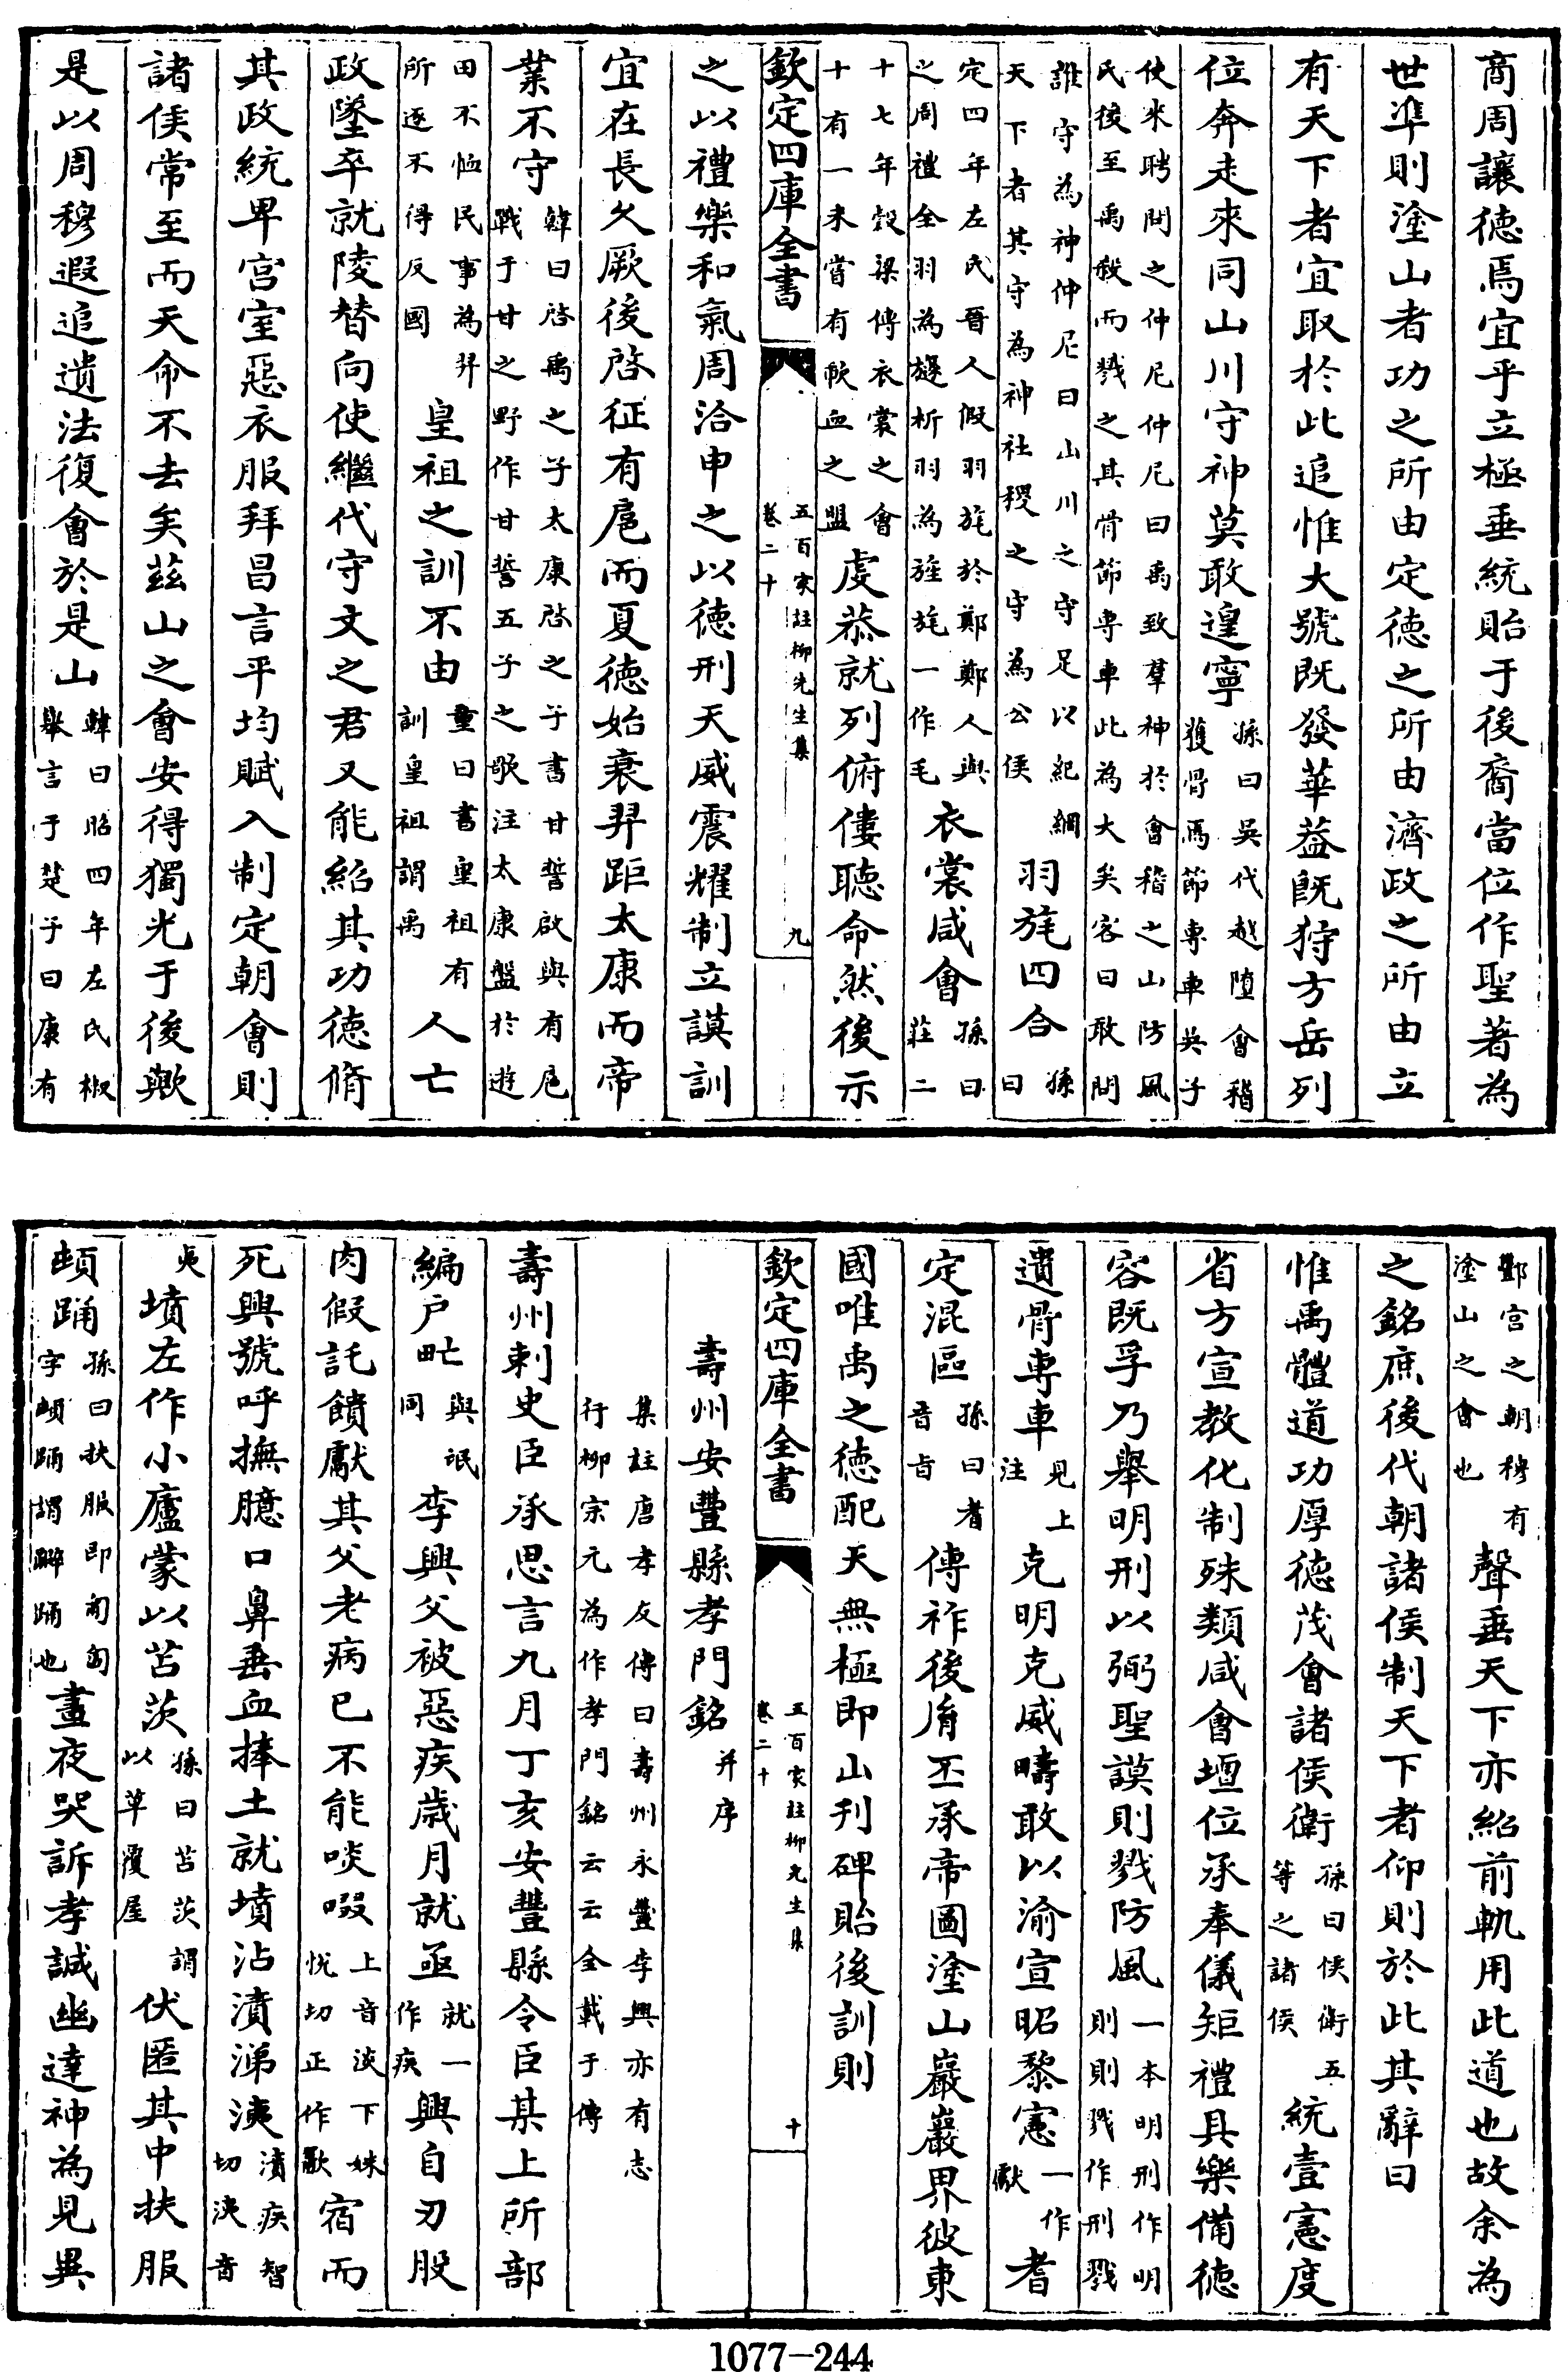 商周讓徳焉宜乎立極垂統貽于後裔當位作聖著為
世凖則塗山者功之所由定徳之所由濟政之所由立
有天下者宜取於此追惟大號既發華葢既狩方岳列
位奔走來同山川守神莫敢遑寧孫曰吳代越墮會稽獲骨焉節専車吳子
使來聘問之仲尼仲尼曰禹致羣神於會稽之山防風氏後至禹殺而戮之其骨節専車此為大矣客曰敢問
誰守為神仲尼曰山川之守足以紀綱天下者其守為神社稷之守為公侯羽旄四合孫曰
定四年左氏晉人假羽旄於鄭鄭人與之周禮全羽為旞析羽為旌旄一作毛衣裳咸會孫曰莊二
十七年穀梁傳衣裳之會十有一未嘗有歃血之盟虔恭就列俯僂聽命然後示
欽定四庫全書 五百家註柳先生集卷二十 九
之以禮樂和氣周洽申之以徳刑天威震耀制立謨訓
宜在長久厥後啓征有扈而夏徳始衰羿距太康而帝
業不守韓曰啓禹之子太康啓之子書甘誓啟與有扈戰于甘之野作甘誓五子之歌注太康盤於遊
田不恤民事為羿所逐不得反國皇祖之訓不由童曰書皇祖有訓皇祖謂禹人亡
政墜卒就陵替向使繼代守文之君又能紹其功徳脩
其政統卑宫室惡衣服拜昌言平均賦入制定朝會則
諸侯常至而天命不去矣兹山之會安得獨光于後歟
是以周穆遐追遺法復會於是山韓曰昭四年左氏椒舉言于楚子曰康有
酆宫之朝穆有塗山之會也聲垂天下亦紹前軌用此道也故余為
之銘庶後代朝諸侯制天下者仰則於此其辭曰
惟禹體道功厚徳茂會諸侯衛孫曰侯衛五等之諸侯統壹憲度
省方宣教化制殊類咸會壇位承奉儀矩禮具樂備徳
容既孚乃舉明刑以弼聖謨則戮防風一本明刑作明則則戮作刑戮
遺骨専車見上注克明克威疇敢以渝宣昭黎憲一作獻耆
定混區孫曰耆音旨傳祚後胤丕承帝圖塗山巖巖界彼東
國唯禹之徳配天無極即山刋碑貽後訓則
欽定四庫全書 五百家註柳先生集卷二十 十
壽州安豐縣孝門銘并序
集註唐孝友傳曰壽州永豐李興亦有志行柳宗元為作孝門銘云云全載于傳
壽州刺史臣承思言九月丁亥安豐縣令臣某上所部
編户甿與氓同李興父被惡疾歲月就亟就一作疾興自刃股
肉假託饋獻其父老病已不能啖啜上音淡下姝悦切正作歠宿而
死興號呼撫臆口鼻垂血捧土就墳沾漬涕洟漬疾智切洟音
夷墳左作小廬蒙以苫茨孫曰苫茨謂以草覆屋伏匿其中扶服
頓踊孫曰扶服即匍匐字頓踊謂擗踊也晝夜哭訴孝誠幽達神為見異
1077-244